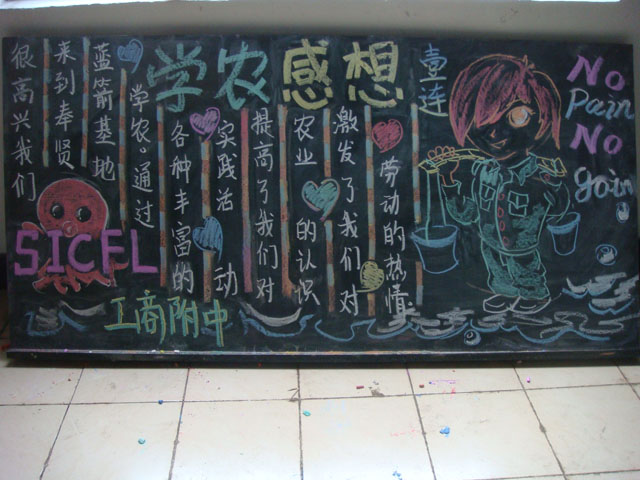 学农感想
壹连
很高兴我们
来到奉贤
蓝箭基地
学农。通过
各种丰富的
实践活动
提高了我们对
农业的认识
激发了我们对
劳动的热情
No
Pain
No
gain
SICFL
工商附中